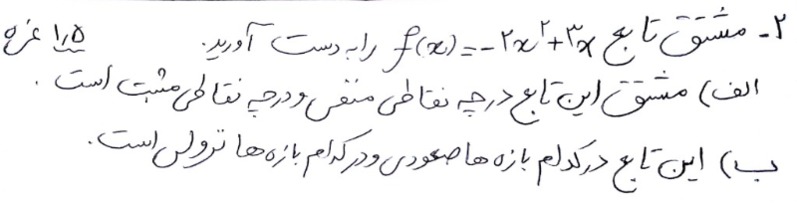 ۲- مشتق تابع f(x)=-۲x²+۳x را به دست آورید. ۱٫۵ نمره
الف) مشتق این تابع در چه نقاطی منفی و در چه نقاطی مثبت است.
ب) این تابع در کدام بازه ها صعودی و در کدام بازه ها نزولی است.